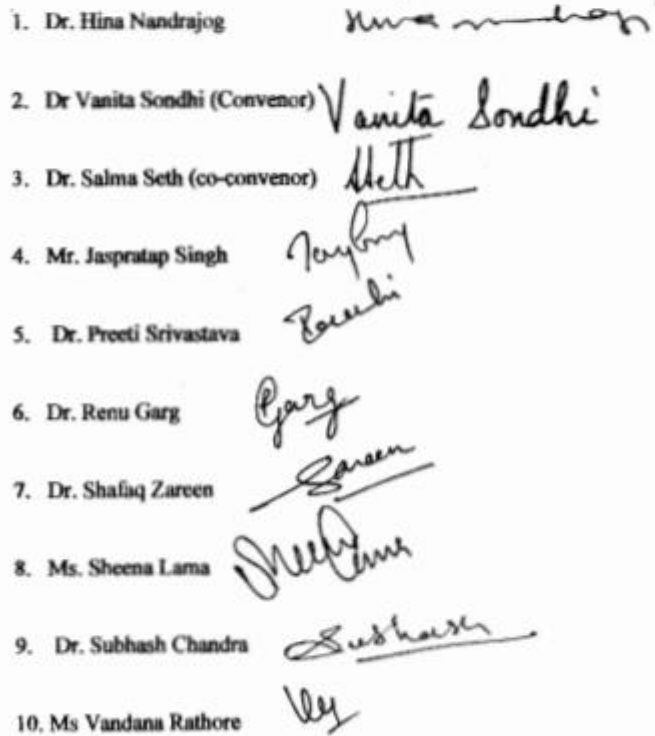 1. Dr. Hina Nandrajog
2. Dr Vanita Sondhi (Convenor) Vanita Sondhi
3. Dr. Salma Seth (co-convenor)
4. Mr. Jaspratap Singh
5. Dr. Preeti Srivastava
6. Dr. Renu Garg Garg
7. Dr. Shafaq Zareen Zareen
8. Ms. Sheena Lama
9. Dr. Subhash Chandra
10. Ms Vandana Rathore